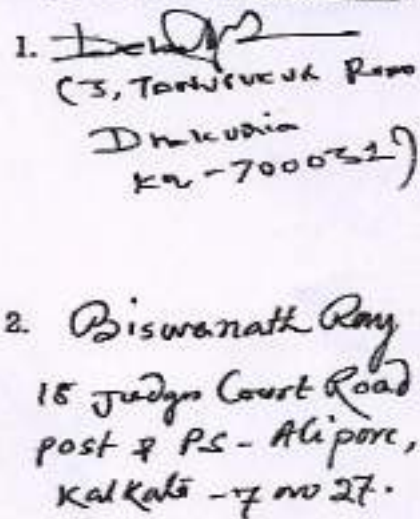 1.
(5, Road
Dhakuria
Kol - 700031)
2. Biswanath Ray
18 Judges Court Road
post & PS - Alipore,
Kolkata - 700027.